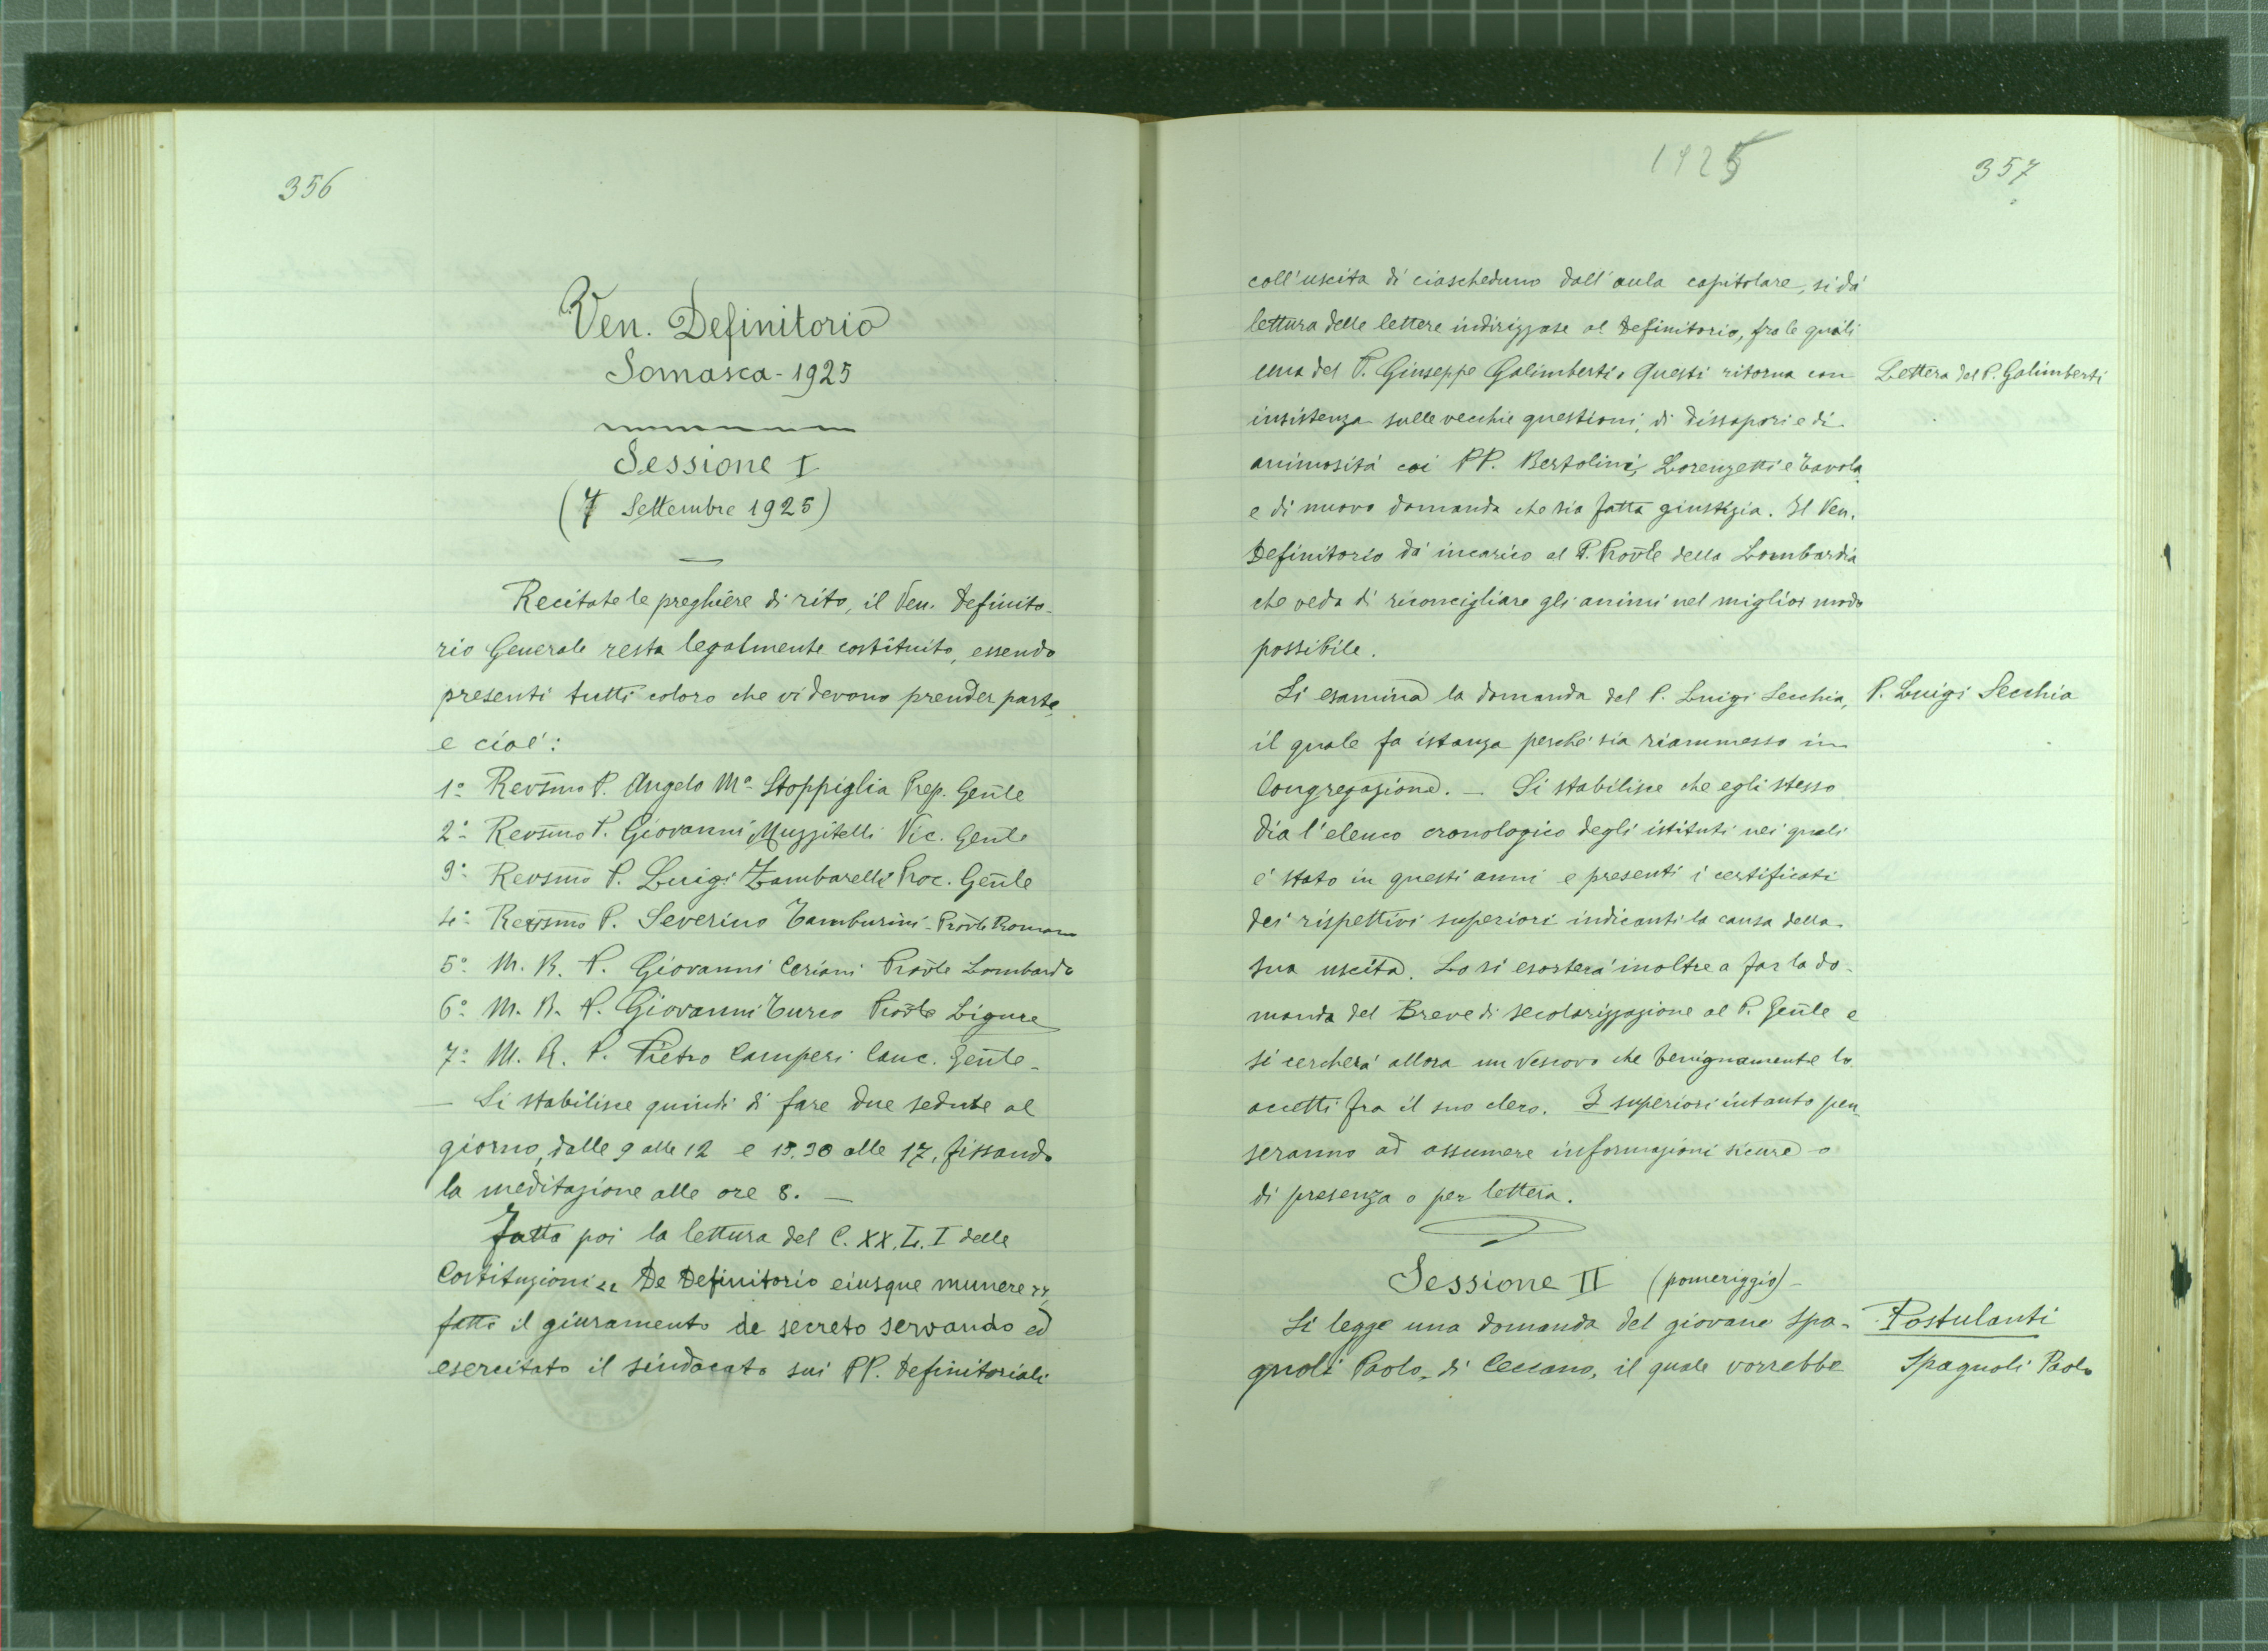 356
Ven. Definitorio
Somasca - 1925
Sessione I
(7 Settembre 1925)
Recitate le preghiere di rito, il Ven. Definito-
rio Generale resta legalmente costituito, essendo
presenti tutti coloro che vi devono prender parte,
e cioé:
1º Revs̃mo P. Angelo Mª Stoppiglia Prep. Geñle
2º Revs̃mo P. Giovanni Muzzitelli Vic. Geñle
3º Revsm̃o P. Luigi Zambarelli Proc. Geñle
4º Revs̃mo P. Severino Tamburini - Prov̄le Romano
5º M. R. P. Giovanni Ceriani Prov̄le Lombardo
6º M. R. P. Giovanni Turco Prov̄le Ligure
7º M. R. P. Pietro Camperi Canc. Geñle -
— Si stabilisce quindi di fare due sedute al
giorno, dalle 9 alle 12 e 15.30 alle 17, fissando
la meditazione alle ore 8. —
Fatta poi la lettura del C. XX. L. I delle
Costituzioni „ De Definitorio eiusque munere „,
fatto il giuramento de secreto servando ed
esercitato il sindacato sui PP. Definitoriali
1925
357
coll'uscita di ciascheduno dall'aula capitolare, si dá
lettura delle lettere indirizzate al Definitorio, fra le quali
una del P. Giuseppe Galimberti. Questi ritorna con
Lettera del P. Galimberti
insistenza sulle vecchie questioni, di dissapori e di
animositá coi PP. Bertolini, Lorenzetti e Tavola,
e di nuovo domanda che sia fatta giustizia. Il Ven.
Definitorio dá incarico al P. Prov̄le della Lombardia
che veda di riconcigliare gli animi nel miglior modo
possibile.
Si esamina la domanda del P. Luigi Secchia,
P. Luigi Secchia
il quale fa istanza perché sia riammesso in
Congregazione. — Si stabilisce che egli stesso
dia l'elenco cronologico degli istituti nei quali
é stato in questi anni e presenti i certificati
dei rispettivi superiori indicanti la causa della
sua uscita. Lo si esorterá inoltre a far la do-
manda del Breve di secolarizzazione al P. Geñle e
si cercherá allora un Vescovo che benignamente lo
accetti fra il suo clero. I superiori intanto pen-
seranno ad assumere informazioni sicure o
di presenza o per lettera.
Sessione II (pomeriggio) -
Si legge una domanda del giovane Spa-
Postulanti
gnoli Paolo, di Ceccano, il quale vorrebbe
Spagnoli Paolo